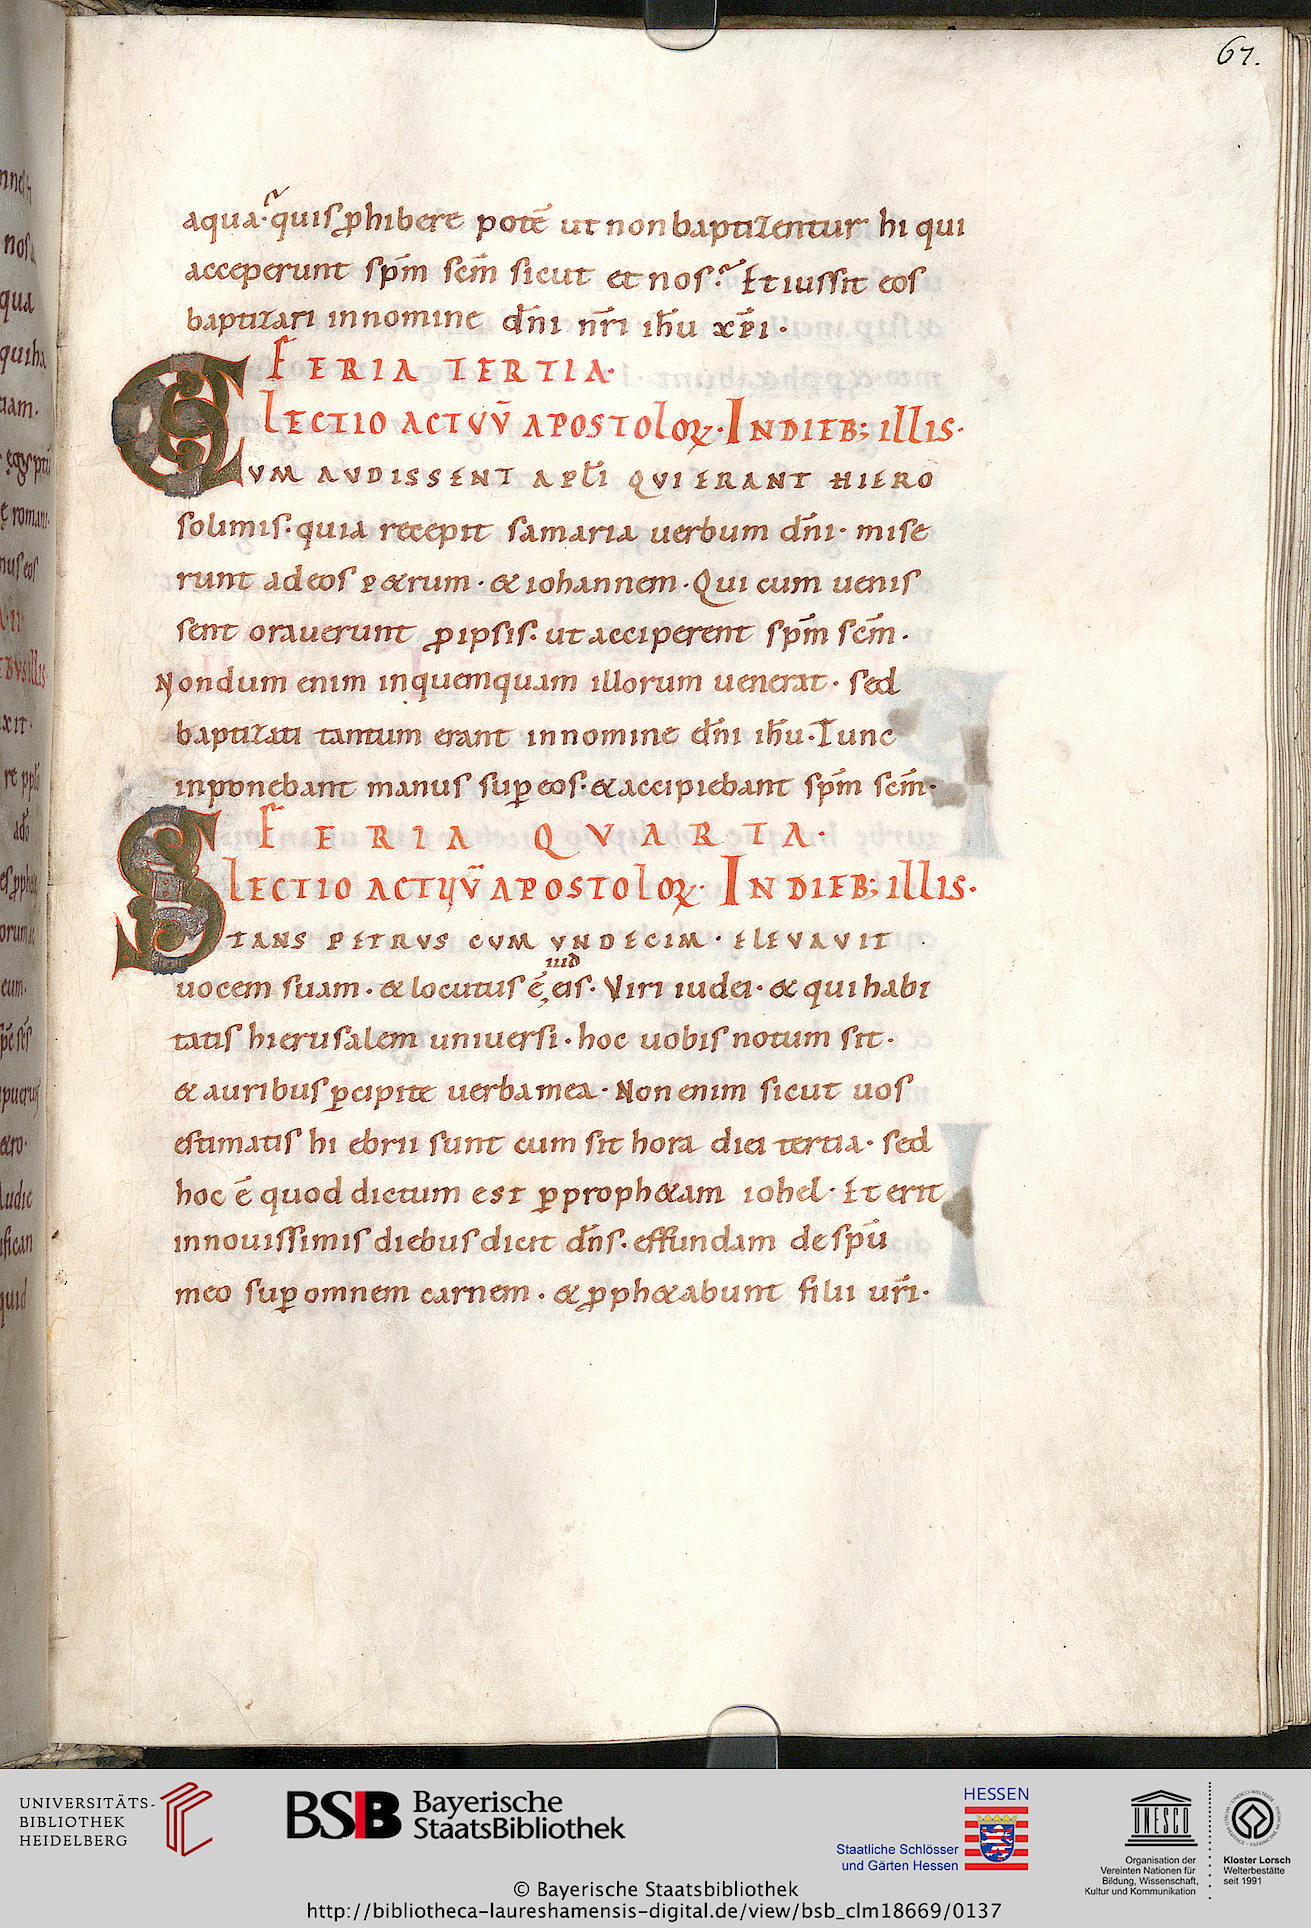 67.
aqua· quis ꝓhibere potē ut non baptizentur hi qui
acceperunt spm̄ scm̄ sicut et nos· Et iussit eos
baptizari in nomine dn̄i nr̄i ih̄u xp̄i·
FERIA TERTIA·
LECTIO ACTVV̄ APOSTOLOꝜ· IN DIEB; ILLIS·
CVM AVDISSENT APL̄I QVI ERANT HIERO
solimis· quia recepit samaria uerbum dn̄i· mise
runt ad eos p&rum· & iohannem· Qui cum uenis
sent orauerunt ꝓ ipsis· ut acciperent spm̄ scm̄·
Nondum enim in quemquam illorum uenerat· sed
baptizati tantum erant in nomine dn̄i ih̄u· Tunc
inponebant manus suꝑ eos· & accipiebant spm̄ scm̄·
FERIA QVARTA·
LECTIO ACTVV̄ APOSTOLOꝜ· IN DIEB; ILLIS·
STANS PETRVS CVM VNDECIM· ELEVAVIT
uocem suam· & locutus ē eis· Viri iudei· & qui habi
tatis hierusalem uniuersi· hoc uobis notum sit·
& auribus ꝑcipite uerba mea· Non enim sicut uos
estimatis hi ebrii sunt cum sit hora diei tertia· sed
hoc ē quod dictum est ꝑ proph&am iohel· Et erit
in nouissimis diebus dicit dn̄s· effundam de spū
meo suꝑ omnem carnem· & ꝓph&abunt filii ur̄i·
UNIVERSITÄTS-
BIBLIOTHEK
HEIDELBERG
BSB Bayerische
StaatsBibliothek
HESSEN
Staatliche Schlösser
und Gärten Hessen
UNESCO
Organisation der
Vereinten Nationen für
Bildung, Wissenschaft,
Kultur und Kommunikation
Kloster Lorsch
Welterbestätte
seit 1991
© Bayerische Staatsbibliothek
http://bibliotheca-laureshamensis-digital.de/view/bsb_clm18669/0137